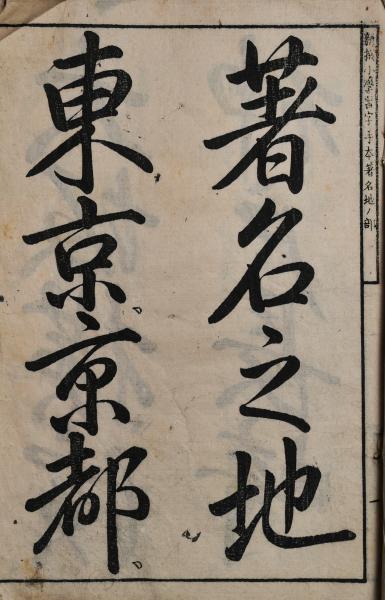 新撰小學習字手本著名地ノ部
著名之地
東京京都